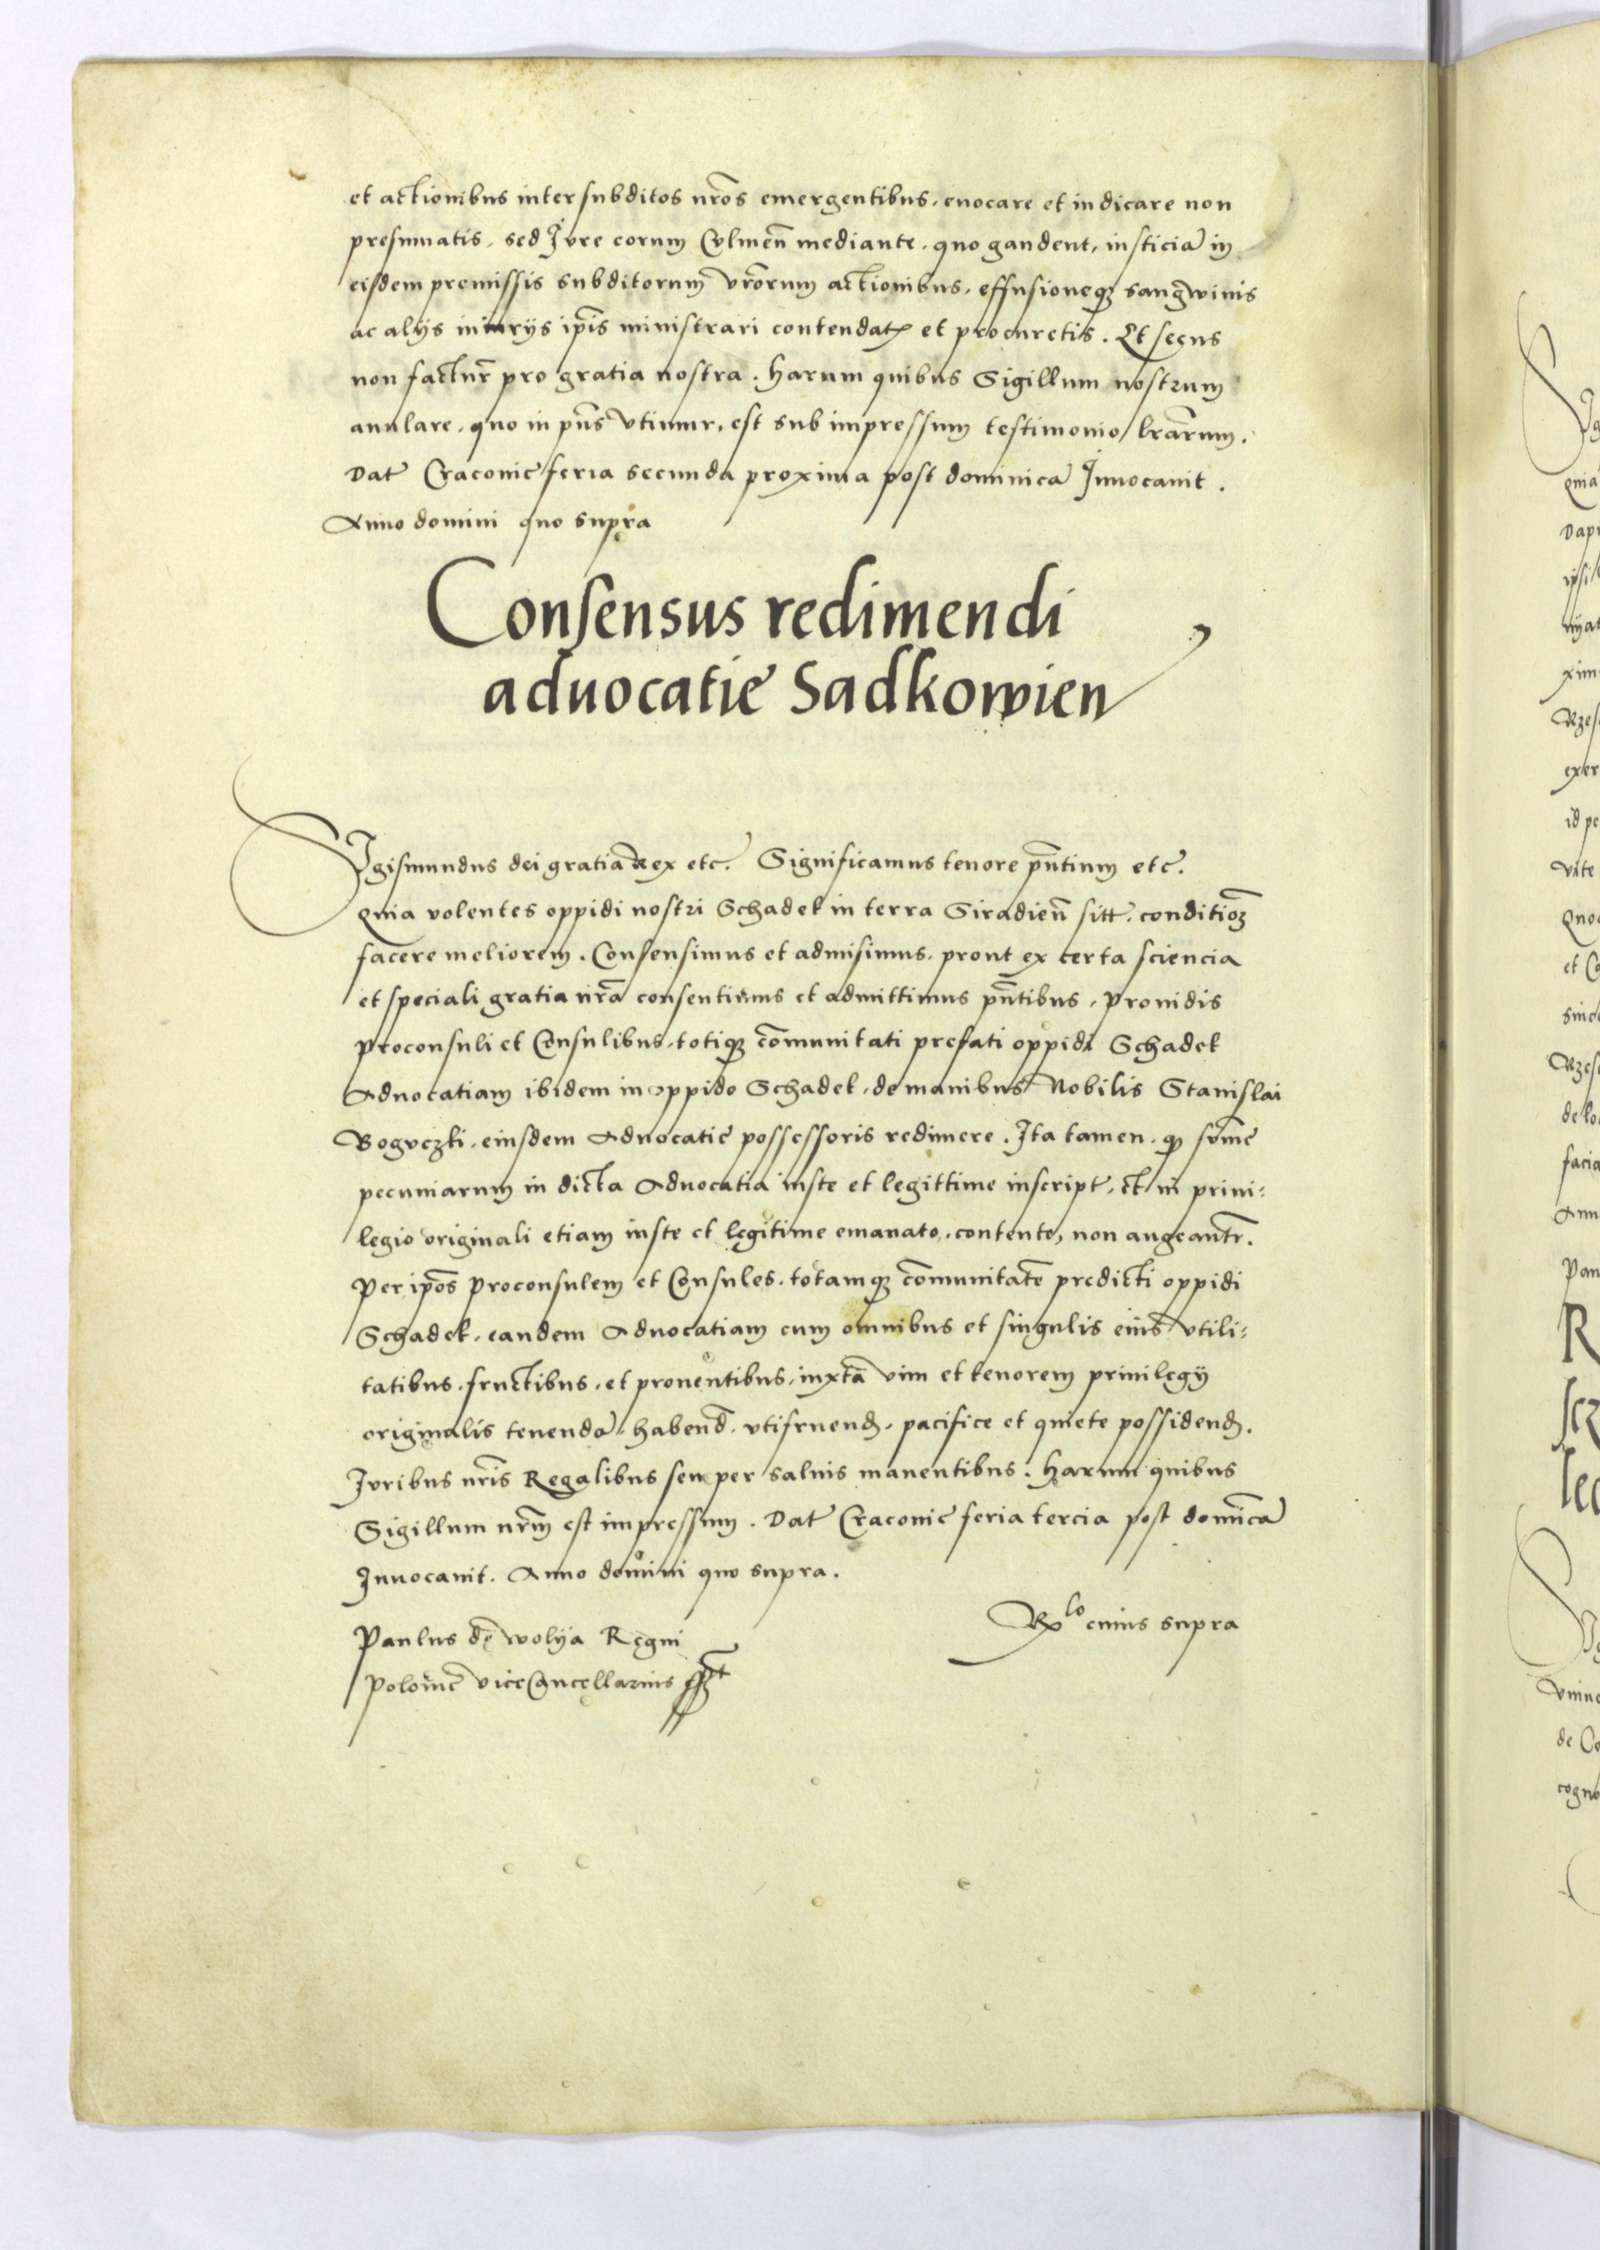 et actionibus inter subditos nr̃os emergentibus, euocare et iudicare non
presumatis, sed Jure eorum Culmeñ mediante, quo gaudent, iusticiã in
eisdem premissis subditorum vr̃orum actionibus, effusioneqꝫ sangwinis
ac alijs iniurijs ip̃is ministrari contendatꝭ et procuretis. Et secus
non facturͬ pro gratia nostra. Harum quibus Sigillum nostrum
anulare, quo in pñs vtimur, est subimpressum testimonio lr̃arum.
Dat̃ Cracouie feria secunda proxima post dominicã Jnuocauit.
Anno domini quo supra
Consensus redimendi
aduocatie Sadkowien
Sigismundus dei gratia Rex etc̃. Significamus tenore pñtium etc̃.
Quia volentes oppidi nostri Schadek in terra Siradień sitt̃. conditioꝫ
facere meliorem. Consensimus et admisimus, prout ex certa sciencia
et speciali gratia nr̃a consentimus et admittimus pñtibus, prouidis
proconsuli et Consulibus, totiqꝫ cõmunitati prefati oppidi Schadek
Aduocatiam ibidem in oppido Schadek, de manibus Nobilis Stanislai
Boguczki, eiusdem Aduocatie possessoris redimere. Jta tamen, qꝫ sum̃e
pecuniarum in dicta Aduocatia iuste et legittime inscript̃, et in priui-
legio originali etiam iuste et legitime emanato, contente, non augeantr̃.
Per ip̃os proconsulem et Consules, totamqꝫ cõmunitatẽ predicti oppidi
Schadek, eandem Aduocatiam cum omnibus et singulis eius vtili-
tatibus, fructibus, et prouentibus, iuxta vim et tenorem priuilegij
originalis tenendã, habend̃, vtifruend̃, pacifice et quiete possidend̃.
Juribus nr̃is Regalibus semper saluis manentibus. Harum quibus
Sigillum nr̃m est impressum. Dat̃ Cracouie feria tercia post domĩcã
Jnuocauit. Anno domini quo supra.
Rlo cuius supra
Paulus de Wolya Regni
Polonie viceCancellarius sszt